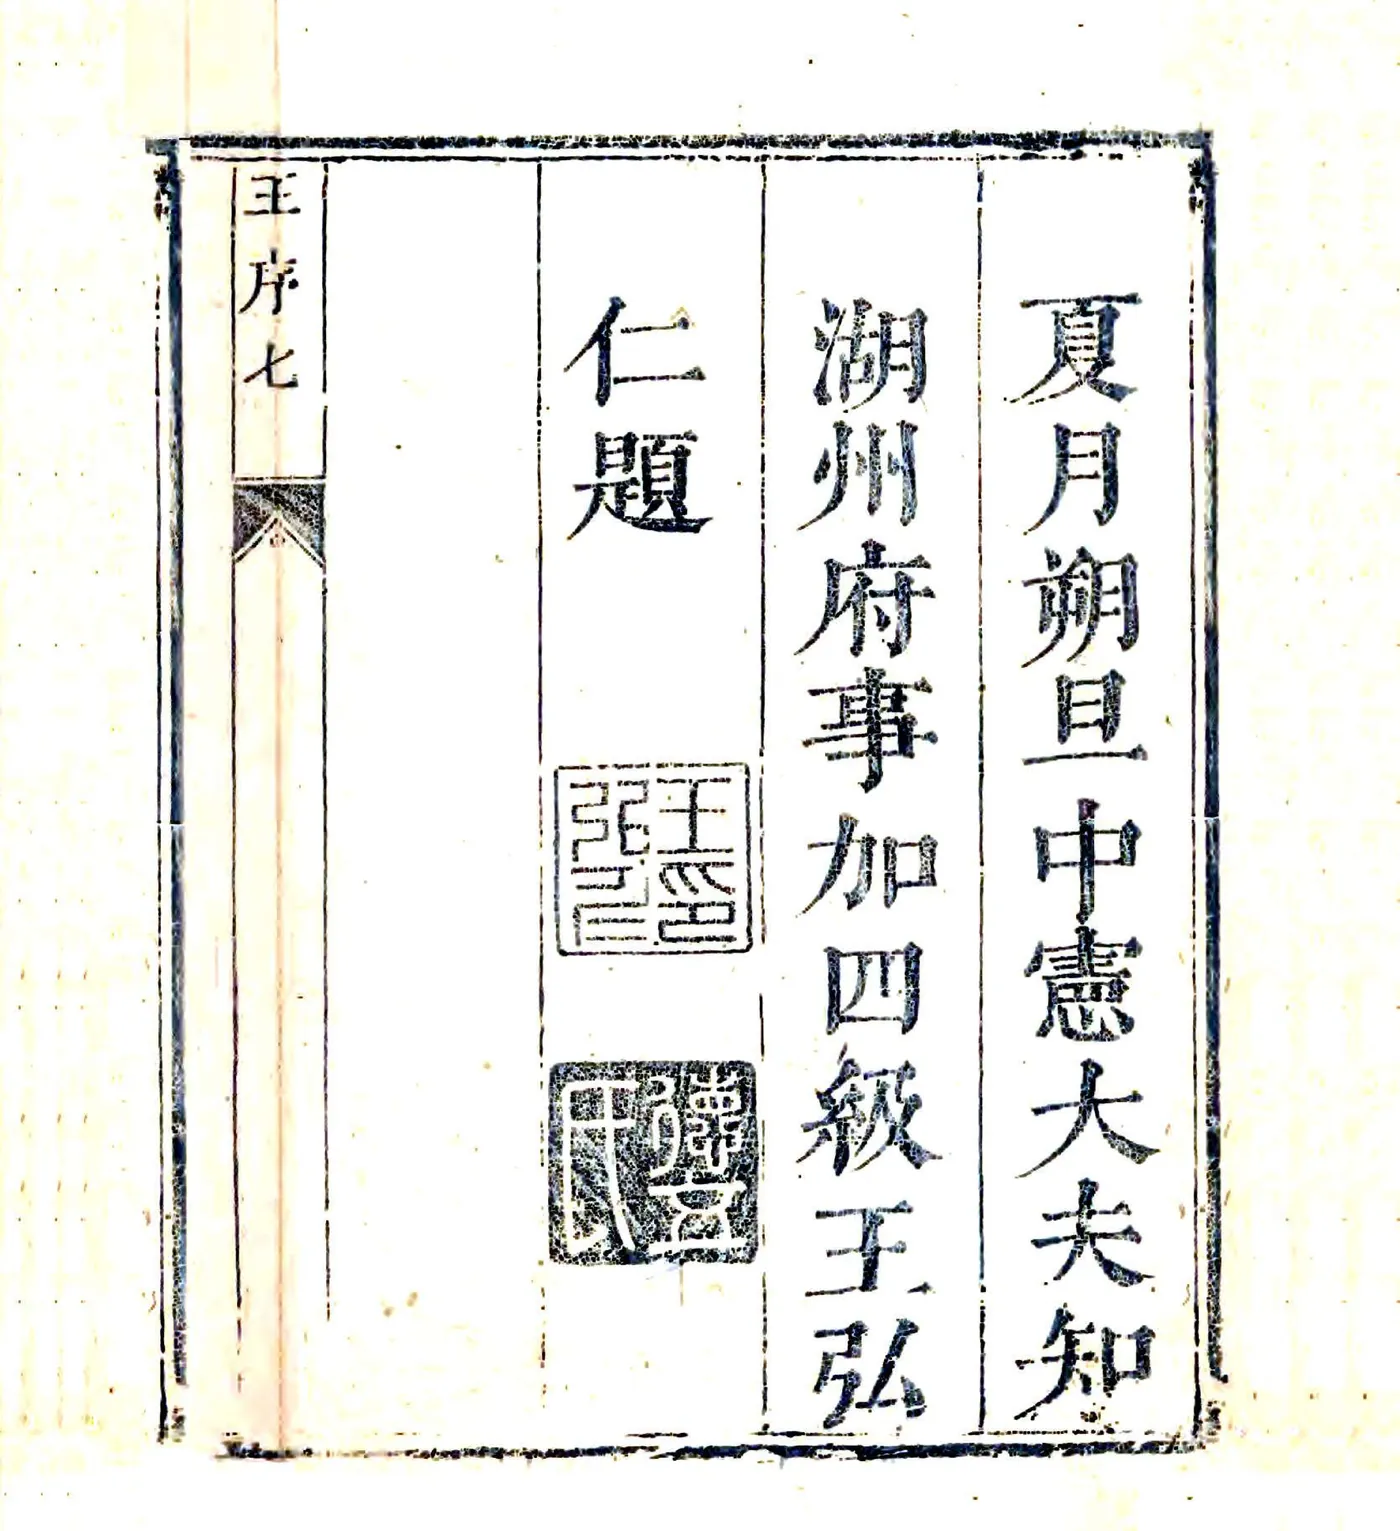 夏月朔旦中憲大夫知
湖州府事加四級王弘
仁題
王印弘仁
王序七